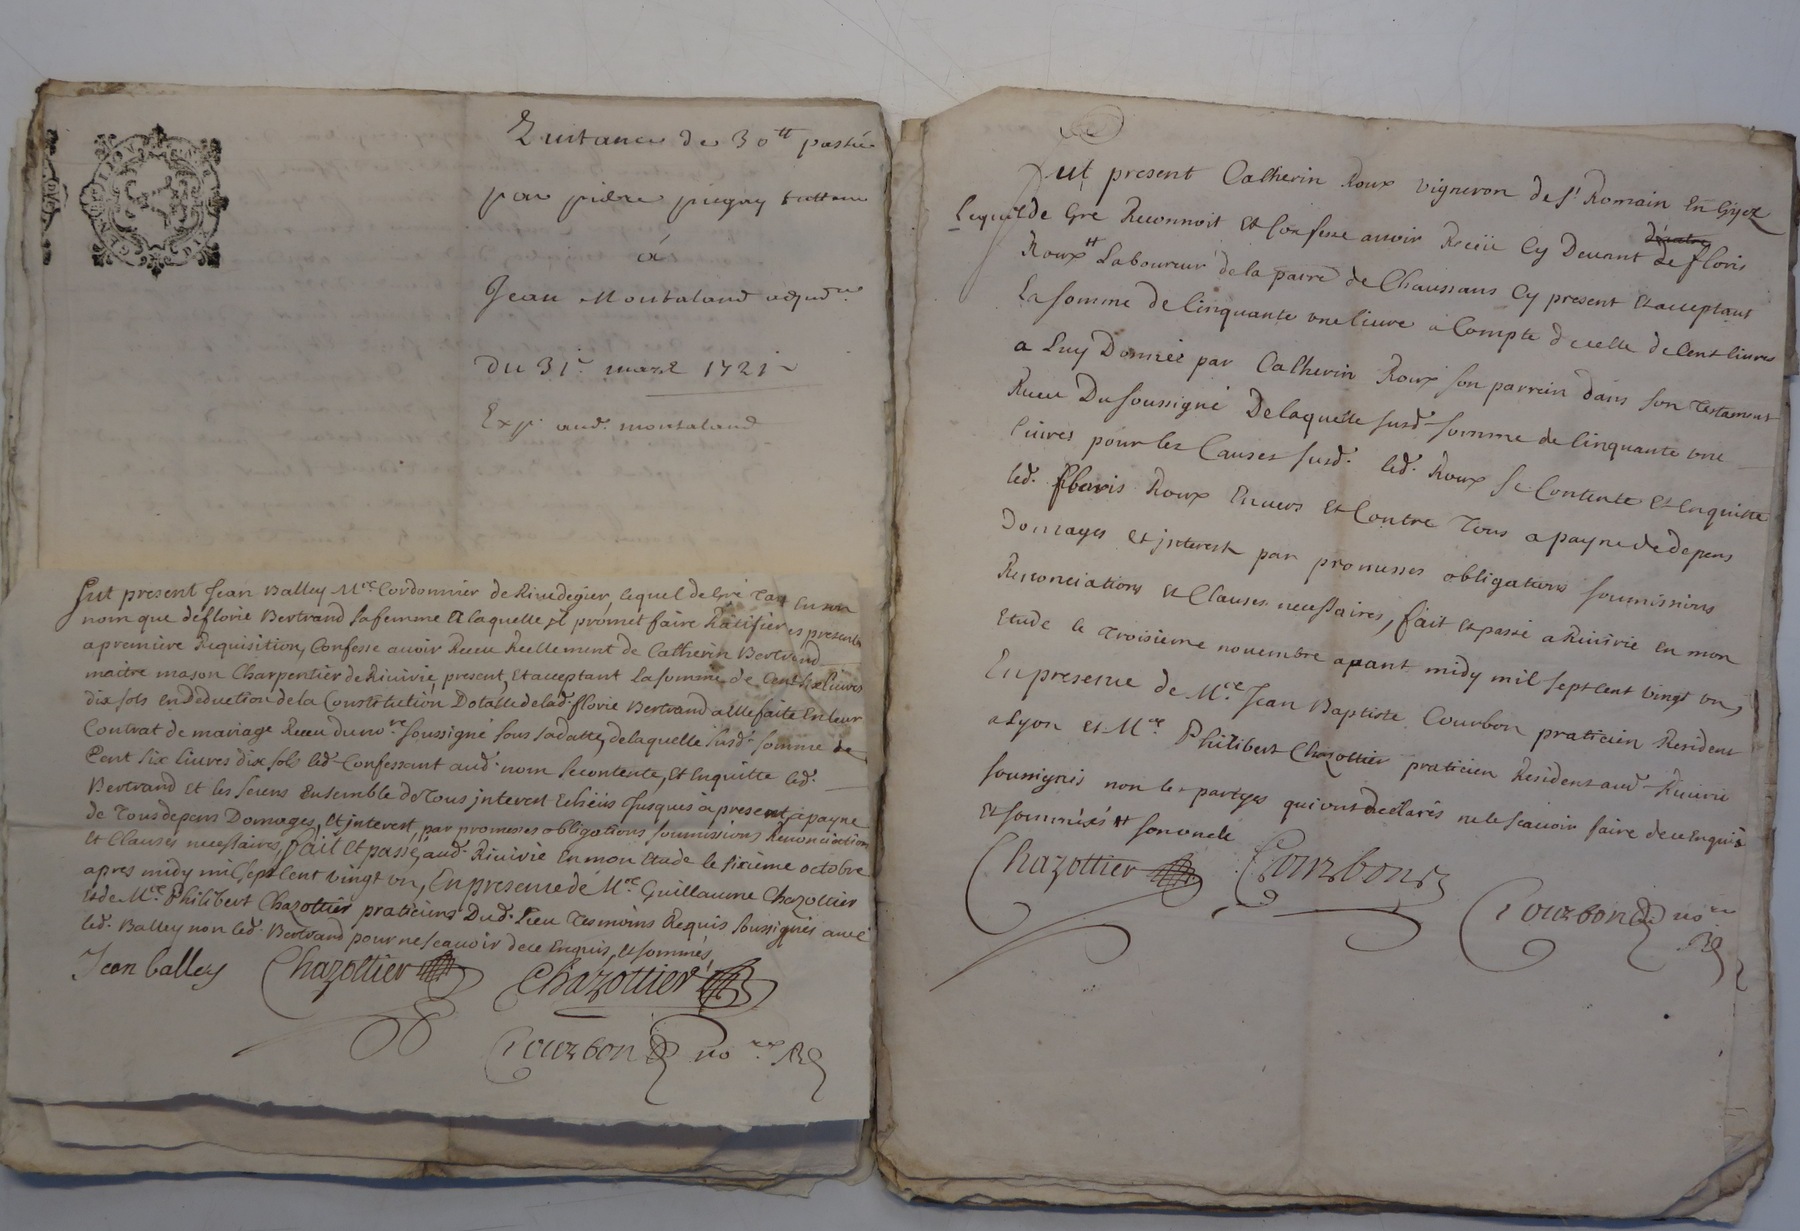 Quitance de 30tt passée
par pierre pugny
à
Jean Montaland
du 31e mars 1721
Exp. aud. montaland
fut present Jean Balley Mre Cordonnier de Rivedegier, lequel de gré tan en son
nom que de florie Bertrand sa femme a laquelle il promet faire Ratifier es presentes
a premiere Requisition, Confesse avoir Receu Reellement de Catherin Bertrand
maitre mason Charpentier de Riverie present, et acceptant La somme de Cent six livres
dix sols en deduction de la Constitution Dotalle de lad. florie Bertrand a elle faite en leur
Contrat de mariage Receu du nore soussigné sous sa datte, de laquelle susd. somme de
Cent six livres dix sols led. Confessant aud. nom se contente, et enquitte led.
Bertrand et les siens ensemble de tous interest echeus jusques à present, a payne
de tous depens Domages, et interest, par promesses obligations soumissions Renonciations
et Clauses necessaires, fait et passé, aud. Riverie en mon etude le sixieme octobre
apres midy mil sept cent vingt un, en presence de Mre Guillaume Chazottier
et de Mre Philibert Chazottier praticiens Dud. Lieu tesmoins Requis soussignés avec
led. Balley non led. Bertrand pour ne scavoir de ce enquis, et sommés,
Jean balley Chazottier Chazottier
Courbon nore
fut present Catherin Roux vigneron de st Romain en Gyez
Lequel de Gré Reconnoit et Confesse avoir Receu Cy Devant de floris
Roux Laboureur de la paroe de Chaussans Cy present et acceptant
La somme de Cinquante une livre a Compte d'celle de Cent livres
a Luy Donnée par Catherin Roux son parrein dans son testament
Receu Du soussigné De laquelle susd. somme de Cinquante une
livres pour les Causes susd. led. Roux se Contente et enquitte
led. floris Roux envers et Contre tous a payne de depens
Domages et interest par promesses obligations soumissions
Renonciations et Clauses necessaires, fait et passé a Riverie en mon
etude le troisieme novembre avant midy mil sept cent vingt un,
En presence de Mre Jean Baptiste Courbon praticien Resident
a Lyon et Mre Philibert Chazottier praticien Resident aud. Riverie
soussignés non les partyes qui ont declarés ne le scavoir faire de ce enquis
et sommés
Chazottier Courbon
Courbon nore